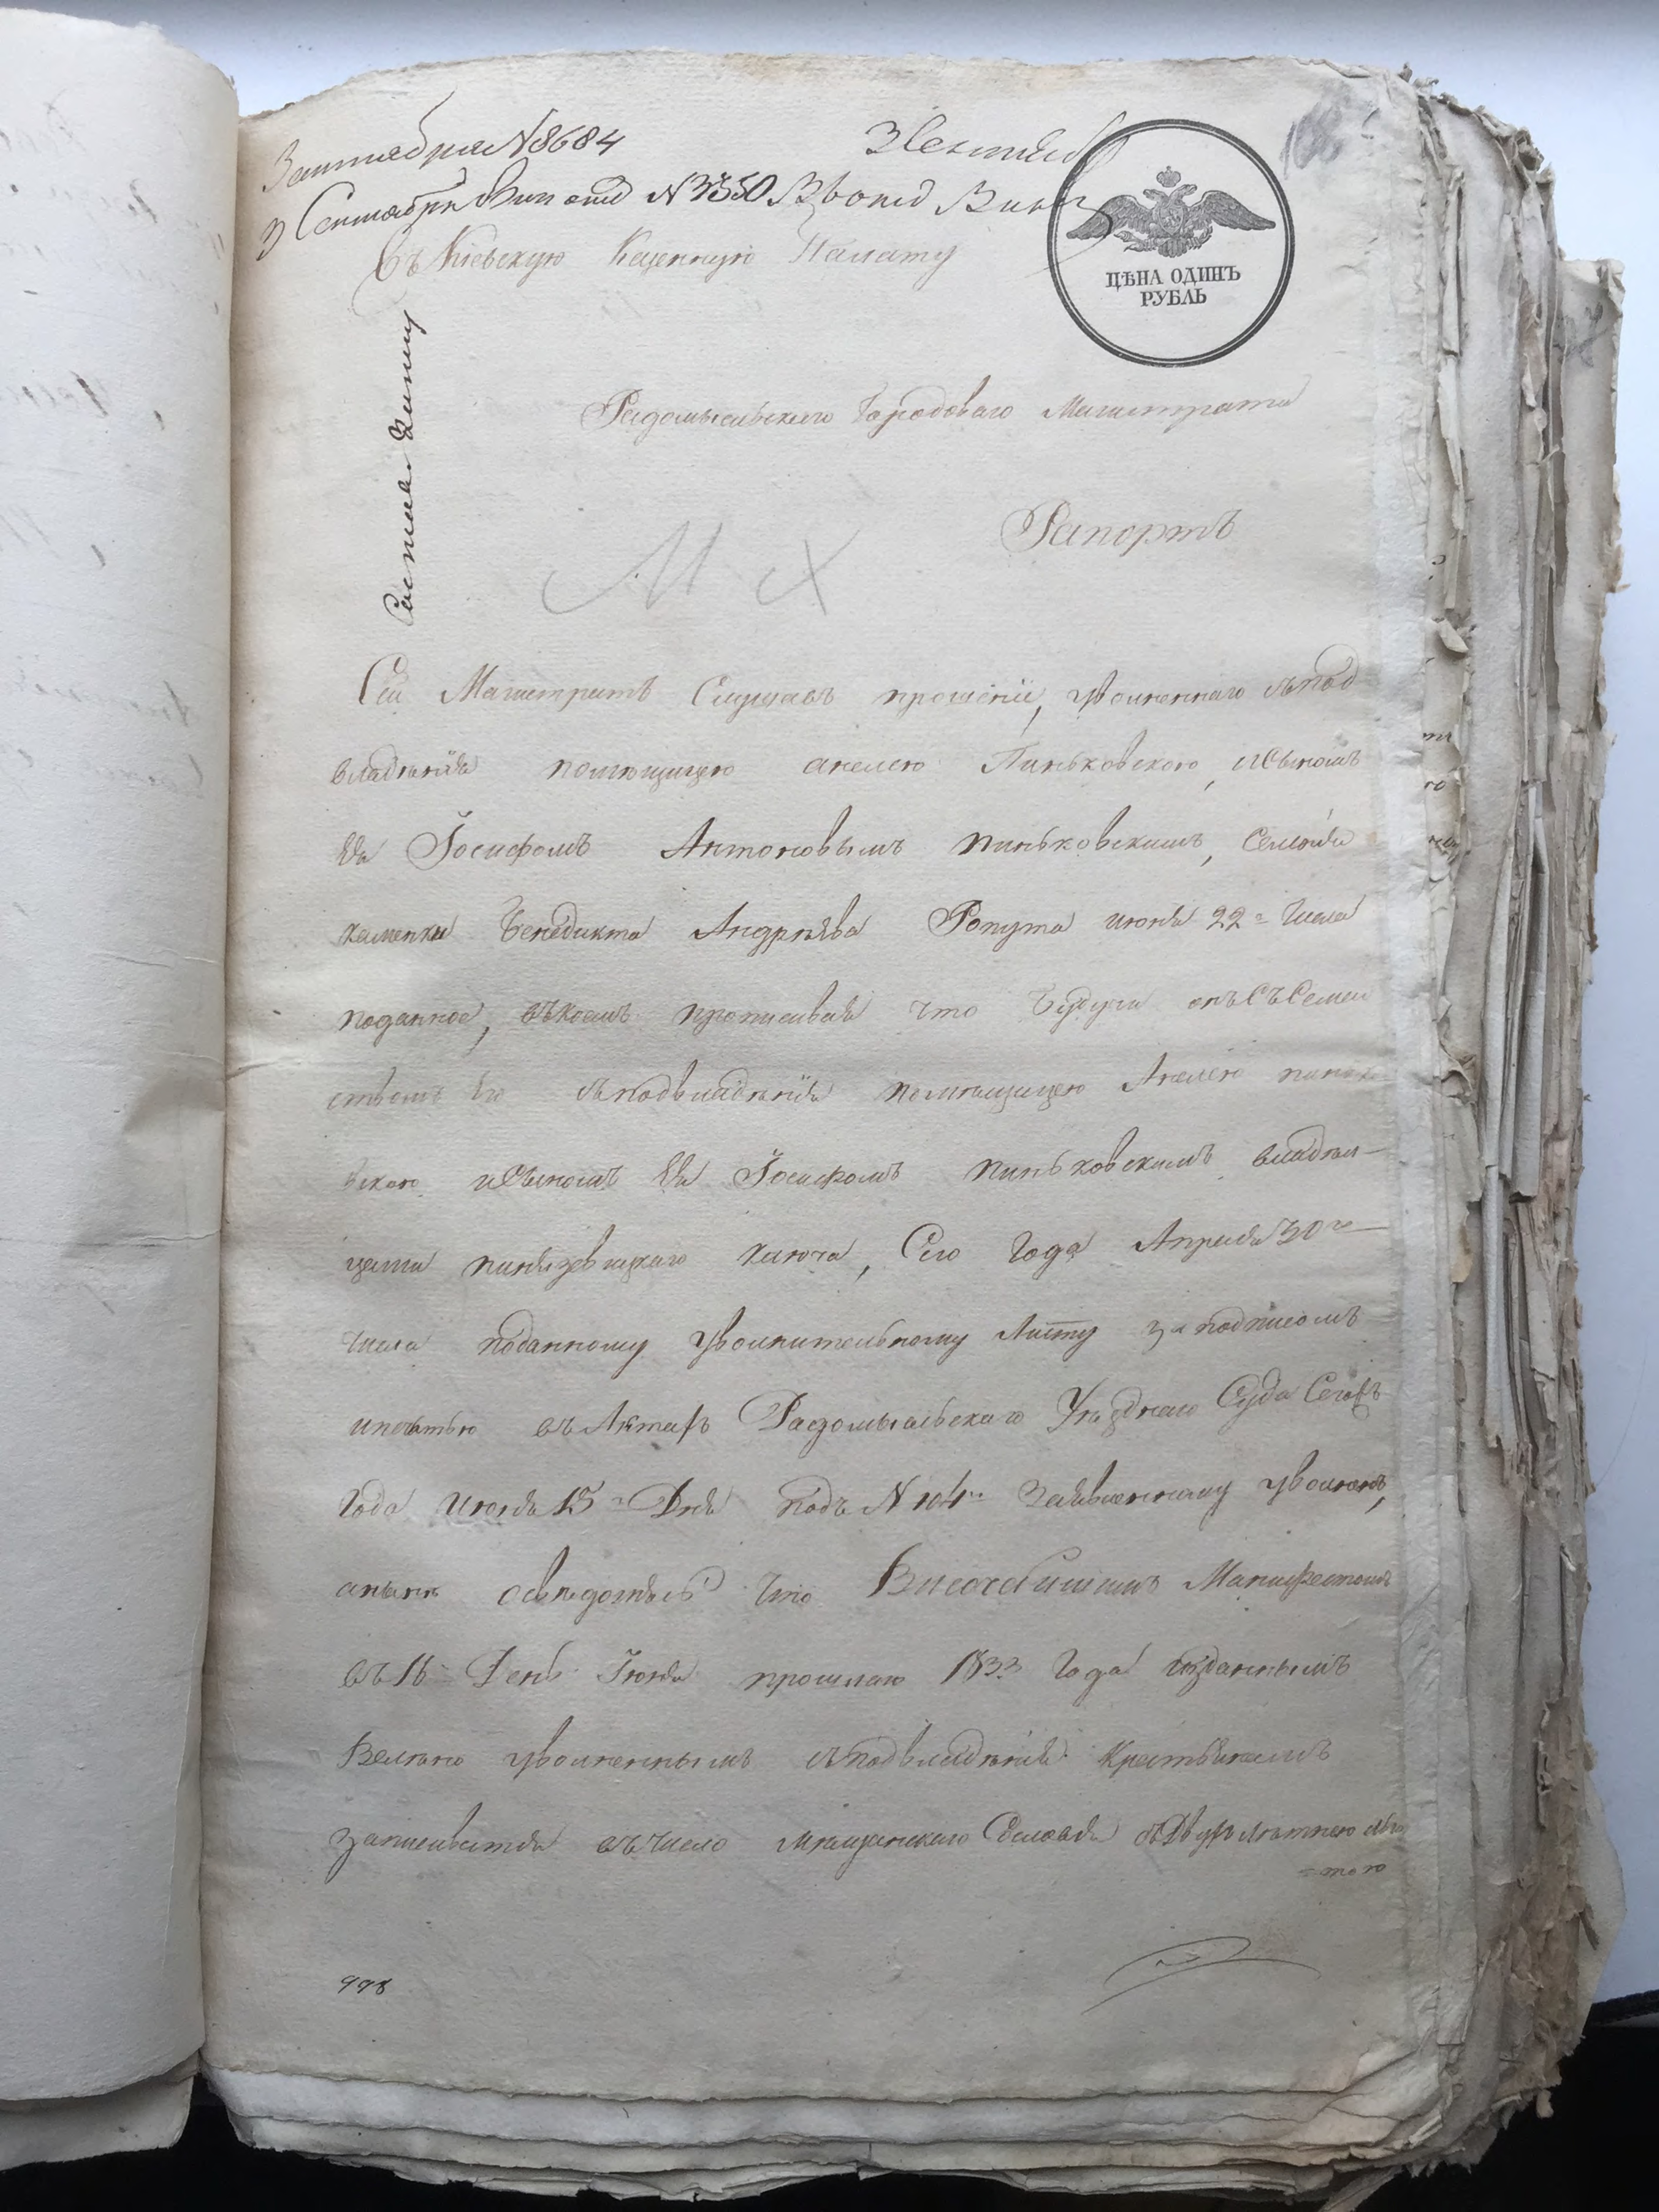 3 сентября N 8684
3 Сентяб
3 Сентября Вин отд N 3350
Въ Кіевскую Казенную Палату
ЦѢНА ОДИНЪ
РУБЛЬ
Радомысльскаго Городоваго Магистрата
Рапортъ
М х
Сей Магистратъ Слушавъ прошеніе, уволеннаго съ под
владѣнія помѣщицею анелею Пиньковскою, и Сыномъ
Ея Іосифомъ Антоновымъ пиньковскимъ, Селенія
каменки Бенедикта Андрѣева Ропута июня 22го Числа
поданное, въ коемъ прописывая что Будучи онъ съ Семей
ствомъ Его съ подвладѣнія помѣщицею Анелею пинько
вскою и Сыномъ Ея Іосифомъ пиньковскимъ владѣл
цами пинязевицкаго ключа, Сего Года Апрѣля 30го
числа поданному увольнительному Листу за подписомъ
и печатью въ Актахъ Радомысльскаго Уѣзднаго Суда Сего жъ
Года Июня 15го Дня подъ N 104м Заявленному уволенъ,
а нынѣ освѣдомясь Что Высочайшимъ Манифестомъ
въ 16 День Іюня прошлаго 1833 Года изданнымъ
Велѣно уволеннымъ съ подвладѣнія Крестьянамъ
записыватся въ число мѣщанскаго Сословія съ Двухъ лѣтнею льго
=тою
998